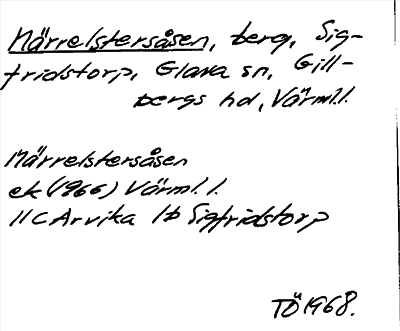 Närrelstersåsen, berg, Sig-
fridstorp, Glava sn, Gill-
bergs hd, Värml.l.
Närrelstersåsen
ek (1966) Värml.l.
11C Arvika 1b Sigfridstorp
TÖ 1968.